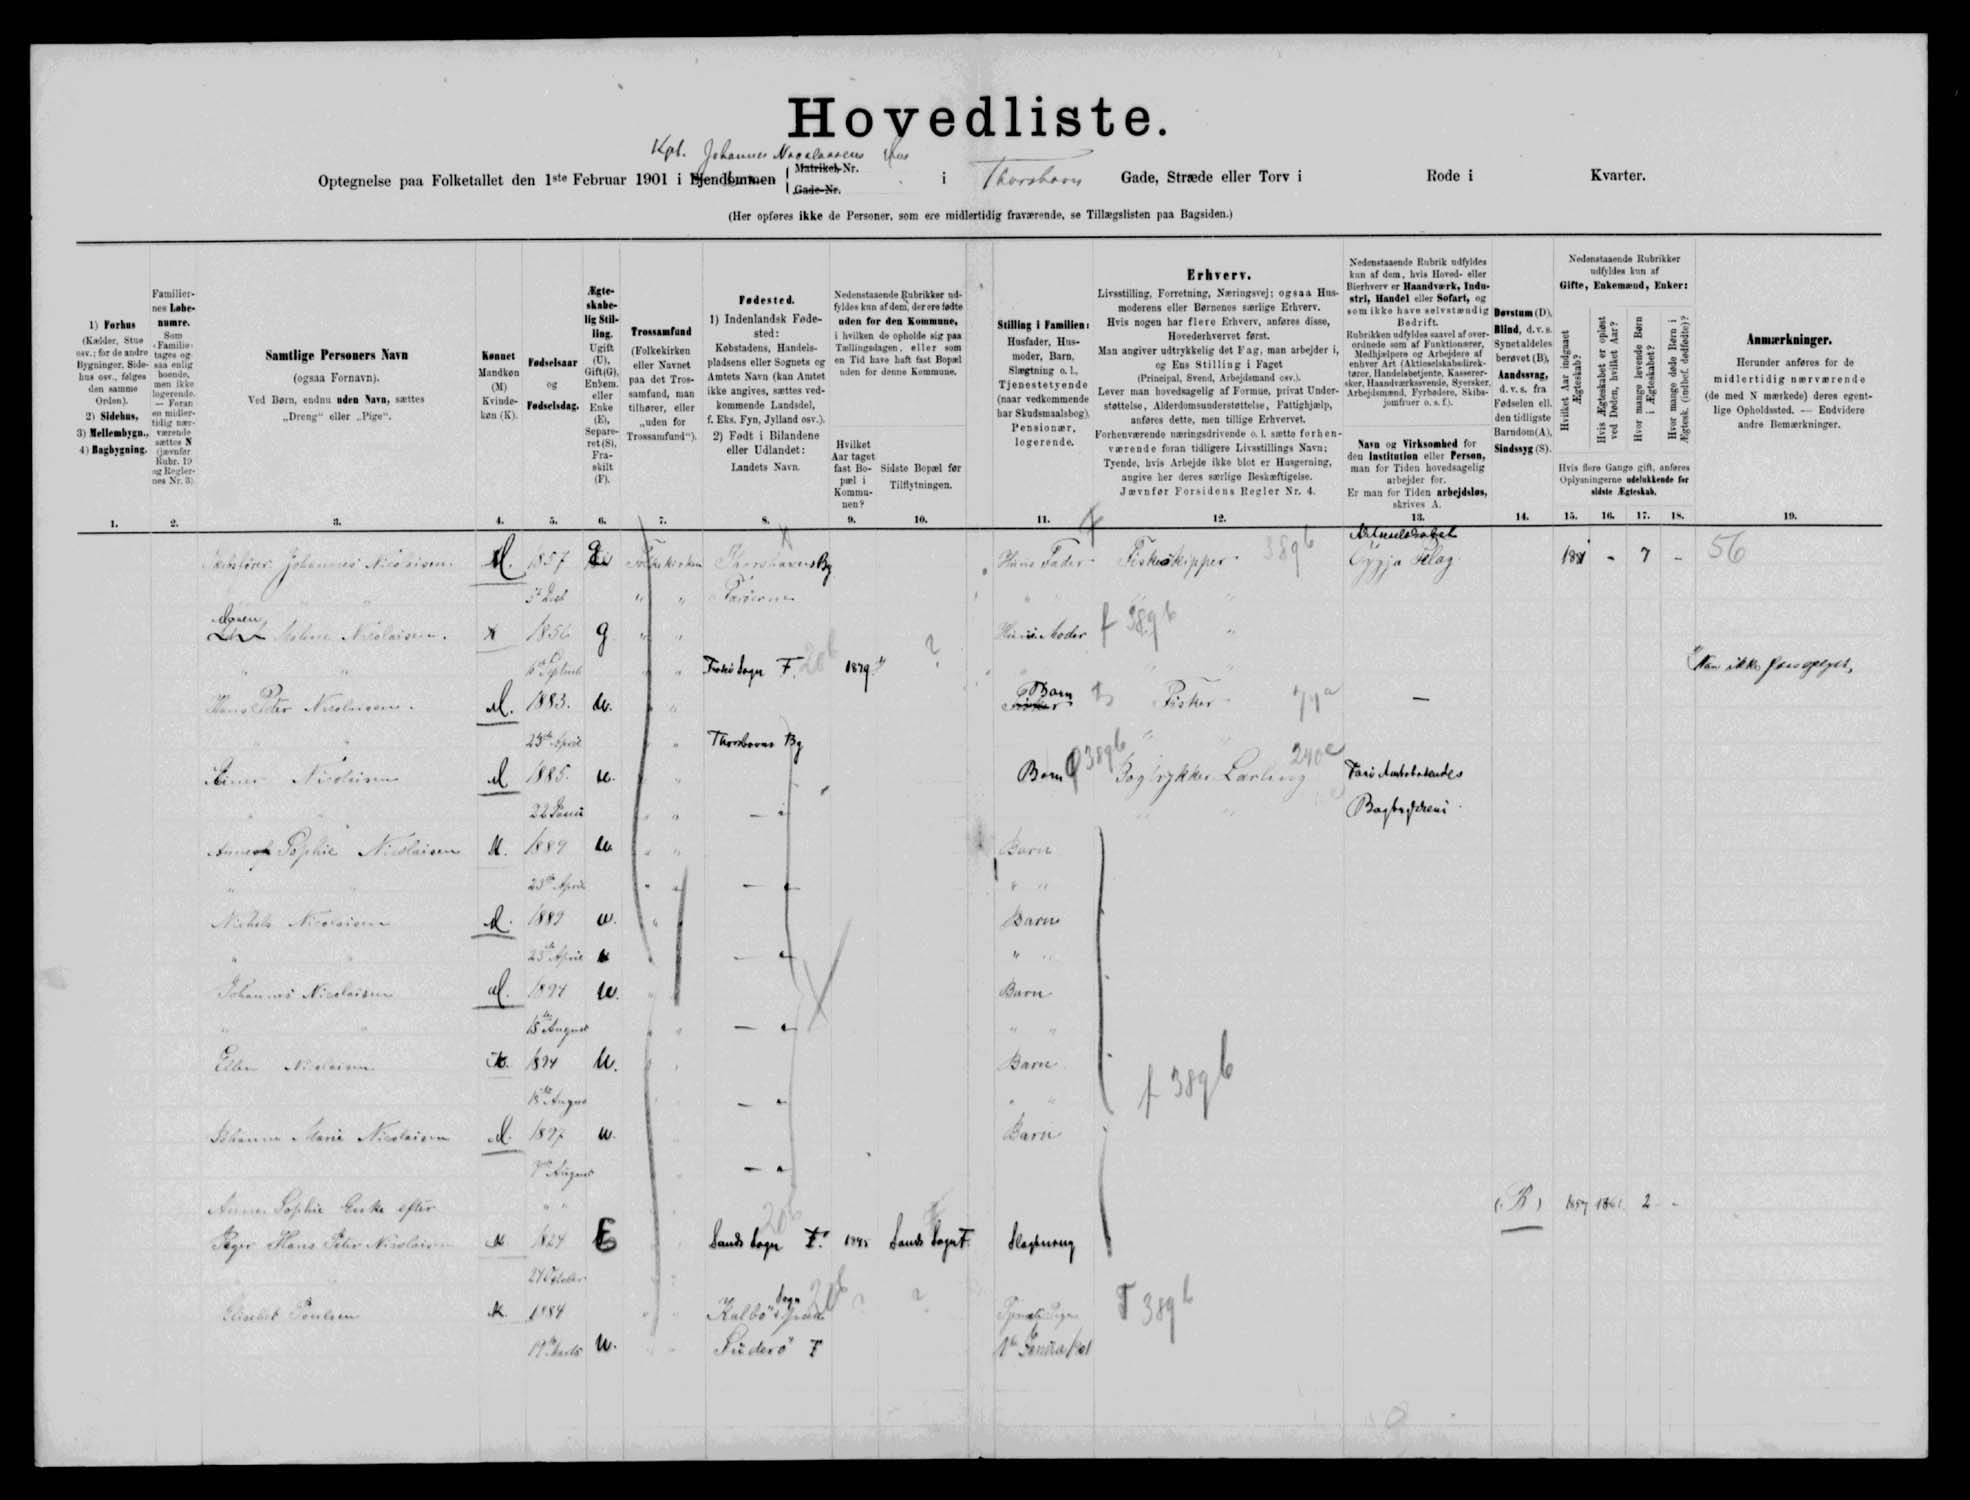 Hovedliste.
Kpt. Johannes Nicolaisens Hus
Optegnelse paa Folketallet den 1ste Februar 1901 i Ejendommen Matrikel-Nr. Gade-Nr. i Thorshavn Gade, Stræde eller Torv i Rode i Kvarter.
(Her opføres ikke de Personer, som ere midlertidig fraværende, se Tillægslisten paa Bagsiden.)
1) Forhus (Kælder, Stue osv.; for de andre Bygninger, Sidehus osv., følges den samme Orden). 2) Sidehus, 3) Mellembygn., 4) Bagbygning.
Familiernes Løbenumre. Som Familie tages ogsaa enlig boende, men ikke logerende. — Foran en midlertidig nærværende sættes N (jævnfør Rubr. 19 og Reglernes Nr. 3).
Samtlige Personers Navn (ogsaa Fornavn). Ved Børn, endnu uden Navn, sættes „Dreng“ eller „Pige“.
Kønnet Mandkøn (M) Kvindekøn (K).
Fødselsaar og Fødselsdag.
Ægteskabelig Stilling. Ugift (U), Gift (G), Enkem. eller Enke (E), Separeret (S), Fraskilt (F).
Trossamfund (Folkekirken eller Navnet paa det Trossamfund, man tilhører, eller „uden for Trossamfund“).
Fødested. 1) Indenlandsk Fødested: Købstadens, Handelspladsens eller Sognets og Amtets Navn (kan Amtet ikke angives, sættes vedkommende Landsdel, f. Eks. Fyn, Jylland osv.). 2) Født i Bilandene eller Udlandet: Landets Navn.
Nedenstaaende Rubrikker udfyldes kun af dem, der ere fødte uden for den Kommune, i hvilken de opholde sig paa Tællingsdagen, eller som en Tid have haft fast Bopæl uden for denne Kommune.
Hvilket Aar taget fast Bopæl i Kommunen?
Sidste Bopæl før Tilflytningen.
Stilling i Familien: Husfader, Husmoder, Barn, Slægtning o. l., Tjenestetyende (naar vedkommende har Skudsmaalsbog), Pensionær, logerende.
Erhverv.
Livsstilling, Forretning, Næringsvej; ogsaa Husmoderens eller Børnenes særlige Erhverv.
Hvis nogen har flere Erhverv, anføres disse, Hovederhvervet først.
Man angiver udtrykkelig det Fag, man arbejder i, og Ens Stilling i Faget (Principal, Svend, Arbejdsmand osv.).
Lever man hovedsagelig af Formue, privat Understøttelse, Alderdomsunderstøttelse, Fattighjælp, anføres dette, men tillige Erhvervet.
Forhenværende næringsdrivende o. l. sætte forhenværende foran tidligere Livsstillings Navn; Tyende, hvis Arbejde ikke blot er Husgerning, angive her deres særlige Beskæftigelse.
Jævnfør Forsidens Regler Nr. 4.
Nedenstaaende Rubrik udfyldes kun af dem, hvis Hoved- eller Bierhverv er Haandværk, Industri, Handel eller Søfart, og som ikke have selvstændig Bedrift.
Rubrikken udfyldes saavel af overordnede som af Funktionærer, Medhjælpere og Arbejdere af enhver Art (Aktieselskabsdirektører, Handelsbetjente, Kasserersker, Haandværkssvende, Syersker, Arbejdsmænd, Fyrbødere, Skibsjomfruer o. s. f.).
Navn og Virksomhed for den Institution eller Person, man for Tiden hovedsagelig arbejder for. Er man for Tiden arbejdsløs, skrives A.
Døvstum (D), Blind, d. v. s. Synet aldeles berøvet (B), Aandssvag, d. v. s. fra Fødselen ell. den tidligste Barndom (A), Sindssyg (S).
Nedenstaaende Rubrikker udfyldes kun af Gifte, Enkemænd, Enker:
Hvilket Aar indgaaet Ægteskab?
Hvis Ægteskabet er opløst ved Døden, hvilket Aar?
Hvor mange levende Børn i Ægteskabet?
Hvor mange døde Børn i Ægtesk. (indbef. dødfødte)?
Hvis flere Gange gift, anføres Oplysningerne udelukkende for sidste Ægteskab.
Anmærkninger. Herunder anføres for de midlertidig nærværende (de med N mærkede) deres egentlige Opholdssted. — Endvidere andre Bemærkninger.
1. 2. 3. 4. 5. 6. 7. 8. 9. 10. 11. 12. 13. 14. 15. 16. 17. 18. 19.
Johannes Nicolaisen M. 1857 G Folkekirken Thorshavns By Hus Fader Fiskeskipper 389b Aktieselskabet - 7 - 56
Færøerne
Nicolaisen. K 1856 g Hus Moder 389b
Sogn F. 20b 1879 ? Kan ikke
Hans Peter Nicolaisen. M. 1883. u. Barn Fisker —
23de April Thorshavns By
Nicolaisen M 1885. u. Barn 389b Bogtrykker Lærling 240
22 Juni
Sophie Nicolaisen K. 1889 u Barn
23de April
Nicolaisen M. 1889 u. Barn
23de April
Johannes Nicolaisen M. 1894 u. Barn
18de August
Nicolaisen K. 1894 U. Barn
18de August 389b
Johanne Marie Nicolaisen 1897 u. Barn
August
Anne Sophie Enke efter (B) 2 -
Hans Peter Nicolaisen K 1824 E Sands Sogn F. Sands Sogn F. Slægtning
Elisabet Poulsen K. 1884 Sogn ? ? 389b
19de Marts U. Suderø F